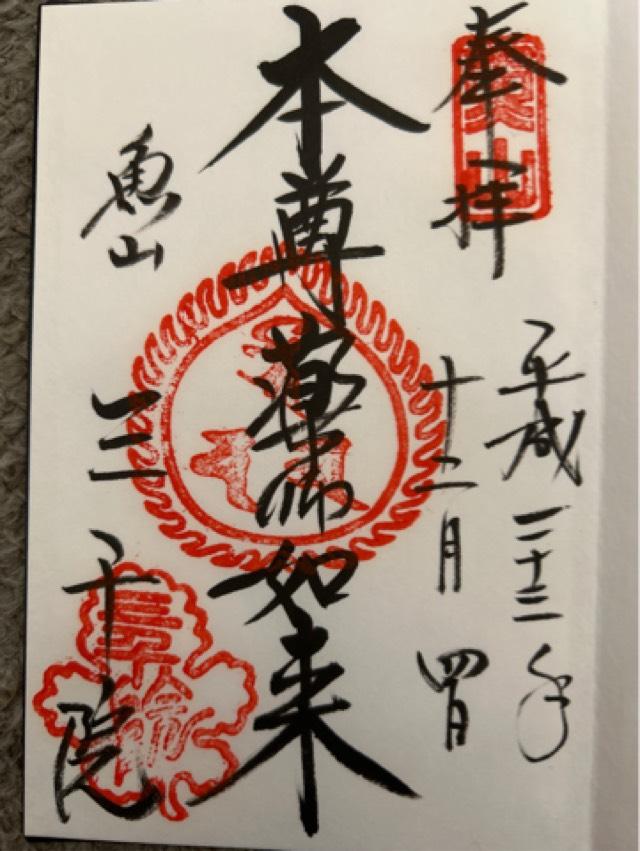 奉拝
平成二十三年
十二月四日
本尊薬師如来
魚山
三千院